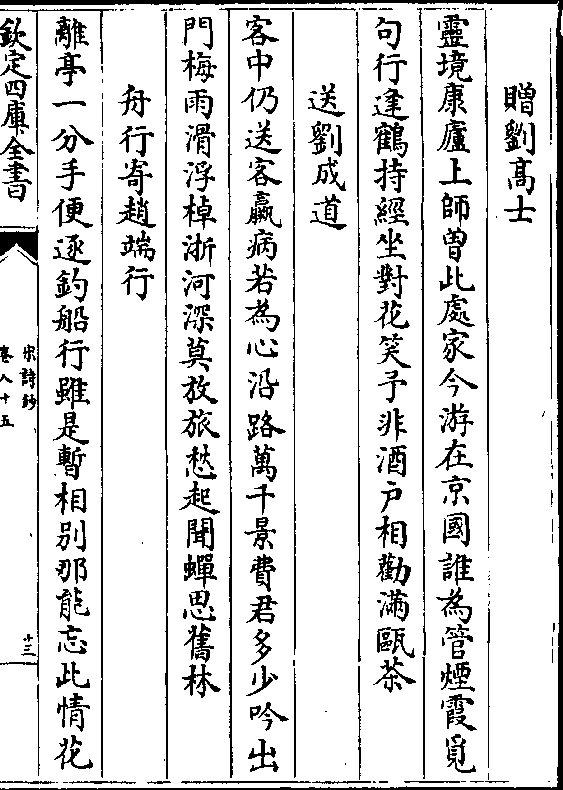 贈劉髙士
靈境康廬上師曽此處家今游在京國誰為管煙霞覓
句行逢鶴持經坐對花笑予非酒户相勸滿甌茶
送劉成道
客中仍送客羸病若為心沿路萬千景費君多少吟出
門梅雨滑浮棹浙河深莫放旅愁起聞蟬思舊林
舟行寄趙端行
離亭一分手便逐釣船行雖是暫相别那能忘此情花
欽定四庫全書
宋詩鈔
卷八十五
十三